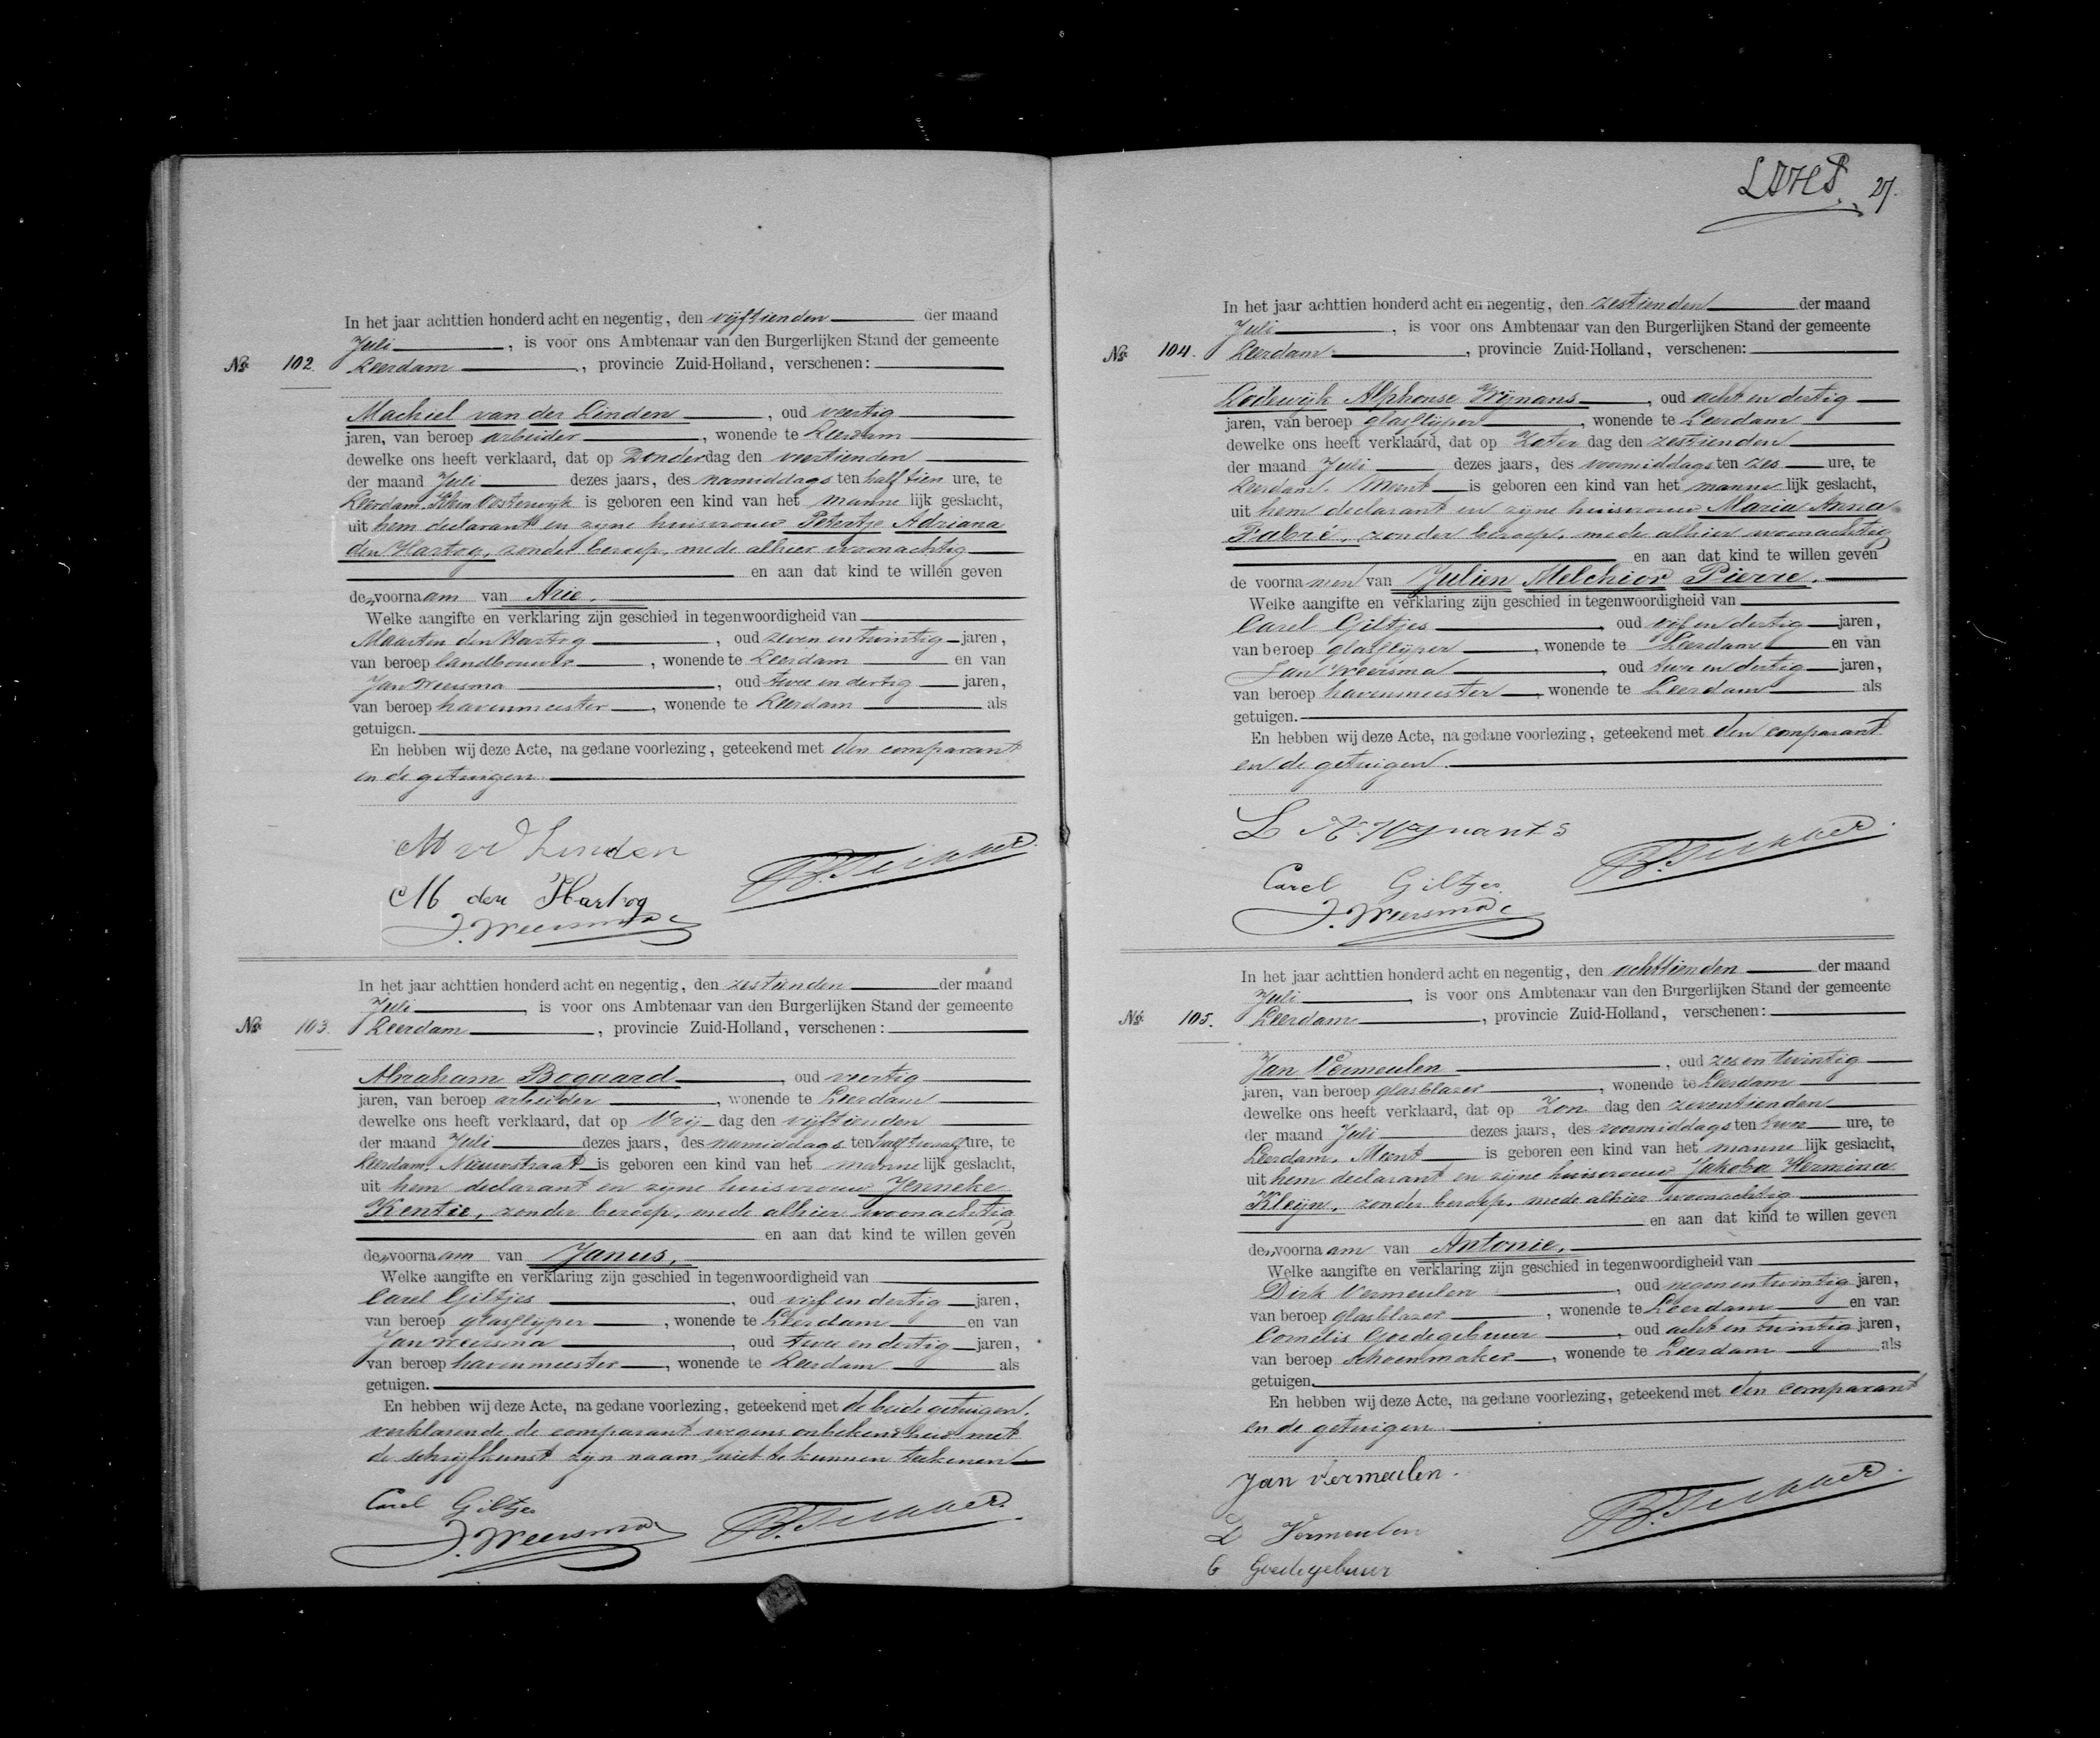 In het jaar achttien honderd acht en negentig, den vijftienden der maand
Juli, is voor ons Ambtenaar van den Burgerlijken Stand der gemeente
No. 102. Leerdam, provincie Zuid-Holland, verschenen:
Machiel van der Linden, oud veertig
jaren, van beroep arbeider, wonende te Leerdam
dewelke ons heeft verklaard, dat op Donderdag den veertienden
der maand Juli dezes jaars, des namiddags ten half tien ure, te
Leerdam, Klein Oosterwijk is geboren een kind van het mannelijk geslacht,
uit hem declarant en zijne huisvrouw Petertje Adriana
den Hartog, zonder beroep, mede alhier woonachtig
en aan dat kind te willen geven
de „ voornaam van Arie.
Welke aangifte en verklaring zijn geschied in tegenwoordigheid van
Maarten den Hartog, oud zeven en twintig jaren,
van beroep landbouwer, wonende te Leerdam en van
Jan Weersma, oud twee en dertig jaren,
van beroep havenmeester, wonende te Leerdam als
getuigen.
En hebben wij deze Acte, na gedane voorlezing, geteekend met den comparant
en de getuigen.
M vd Linden
M den Hartog
J. Weersma
In het jaar achttien honderd acht en negentig, den zestienden der maand
Juli, is voor ons Ambtenaar van den Burgerlijken Stand der gemeente
No. 103. Leerdam, provincie Zuid-Holland, verschenen:
Abraham Bogaard, oud veertig
jaren, van beroep arbeider, wonende te Leerdam
dewelke ons heeft verklaard, dat op Vrijdag den vijftienden
der maand Juli dezes jaars, des namiddags ten half twaalf ure, te
Leerdam, Nieuwstraat is geboren een kind van het mannelijk geslacht,
uit hem declarant en zijne huisvrouw Jenneke
Kentie, zonder beroep, mede alhier woonachtig
en aan dat kind te willen geven
de „ voornaam van Janus.
Welke aangifte en verklaring zijn geschied in tegenwoordigheid van
Carel Giltjes, oud vijf en dertig jaren,
van beroep glasslijper, wonende te Leerdam en van
Jan Weersma, oud twee en dertig jaren,
van beroep havenmeester, wonende te Leerdam als
getuigen.
En hebben wij deze Acte, na gedane voorlezing, geteekend met de beide getuigen,
verklarende de comparant wegens onbekendheid met
de schrijfkunst zijn naam niet te kunnen teekenen
Carel Giltjes
J. Weersma
27.
In het jaar achttien honderd acht en negentig, den zestienden der maand
Juli, is voor ons Ambtenaar van den Burgerlijken Stand der gemeente
No. 104. Leerdam, provincie Zuid-Holland, verschenen:
Lodewijk Alphonse Wijnans, oud acht en dertig
jaren, van beroep glasslijper, wonende te Leerdam
dewelke ons heeft verklaard, dat op Zaterdag den zestienden
der maand Juli dezes jaars, des voormiddags ten zes ure, te
Leerdam, Meent is geboren een kind van het mannelijk geslacht,
uit hem declarant en zijne huisvrouw Maria Anna
Fabré, zonder beroep, mede alhier woonachtig
en aan dat kind te willen geven
de voornamen van Julien Melchior Pierre.
Welke aangifte en verklaring zijn geschied in tegenwoordigheid van
Carel Giltjes, oud vijf en dertig jaren,
van beroep glasslijper, wonende te Leerdam en van
Jan Weersma, oud twee en dertig jaren,
van beroep havenmeester, wonende te Leerdam als
getuigen.
En hebben wij deze Acte, na gedane voorlezing, geteekend met den comparant
en de getuigen.
L A Wynants
Carel Giltjes
J. Weersma
In het jaar achttien honderd acht en negentig, den achttienden der maand
Juli, is voor ons Ambtenaar van den Burgerlijken Stand der gemeente
No. 105. Leerdam, provincie Zuid-Holland, verschenen:
Jan Vermeulen, oud zes en twintig
jaren, van beroep glasblazer, wonende te Leerdam
dewelke ons heeft verklaard, dat op Zondag den zeventienden
der maand Juli dezes jaars, des voormiddags ten twee ure, te
Leerdam, Meent is geboren een kind van het mannelijk geslacht,
uit hem declarant en zijne huisvrouw Jakoba Hermina
Kleijn, zonder beroep, mede alhier woonachtig
en aan dat kind te willen geven
de „ voornaam van Antonie.
Welke aangifte en verklaring zijn geschied in tegenwoordigheid van
Dirk Vermeulen, oud negen en twintig jaren,
van beroep glasblazer, wonende te Leerdam en van
Cornelis Goedegebuur, oud acht en twintig jaren,
van beroep schoenmaker, wonende te Leerdam als
getuigen.
En hebben wij deze Acte, na gedane voorlezing, geteekend met den comparant
en de getuigen.
Jan Vermeulen.
D Vermeulen
C Goedegebuur